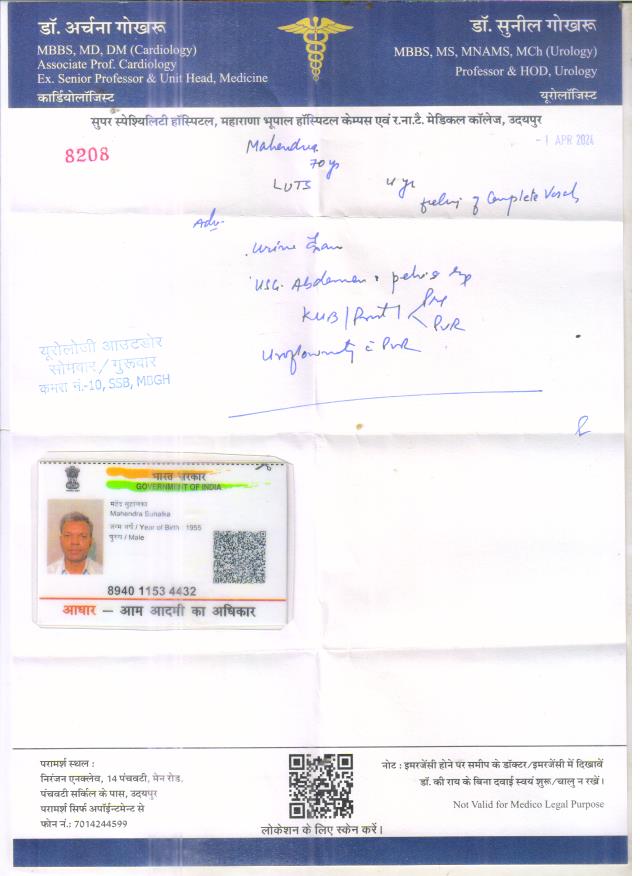 डॉ. अर्चना गोखरू
MBBS, MD, DM (Cardiology)
Associate Prof. Cardiology
Ex. Senior Professor & Unit Head, Medicine
कार्डियोलॉजिस्ट
डॉ. सुनील गोखरू
MBBS, MS, MNAMS, MCh (Urology)
Professor & HOD, Urology
यूरोलॉजिस्ट
सुपर स्पेश्यिलिटी हॉस्पिटल, महाराणा भूपाल हॉस्पिटल केम्पस एवं र.ना.टै. मेडिकल कॉलेज, उदयपुर
8208
Mahendra
70 yr
- 1 APR 2024
LUTS
4 yr
feeling of
Adv.
Urine
USG. Abdomen
KUB/
PVR
Uroflowmetry c PVR
यूरोलोजी आउटडोर
सोमवार/गुरूवार
कमरा नं.-10, SSB, MBGH
भारत सरकार
GOVERNMENT OF INDIA
Mahendra
जन्म वर्ष / Year of Birth : 1955
पुरुष / Male
8940 1153 4432
आधार – आम आदमी का अधिकार
परामर्श स्थल :
निरंजन एनक्लेव, 14 पंचवटी, मेन रोड,
पंचवटी सर्किल के पास, उदयपुर
परामर्श सिर्फ अपॉईन्टमेन्ट से
फोन नं.: 7014244599
लोकेशन के लिए स्केन करें।
नोट : इमरजेंसी होने पर समीप के डॉक्टर/इमरजेंसी में दिखावें
डॉ. की राय के बिना दवाई स्वयं शुरू/चालु न रखें।
Not Valid for Medico Legal Purpose